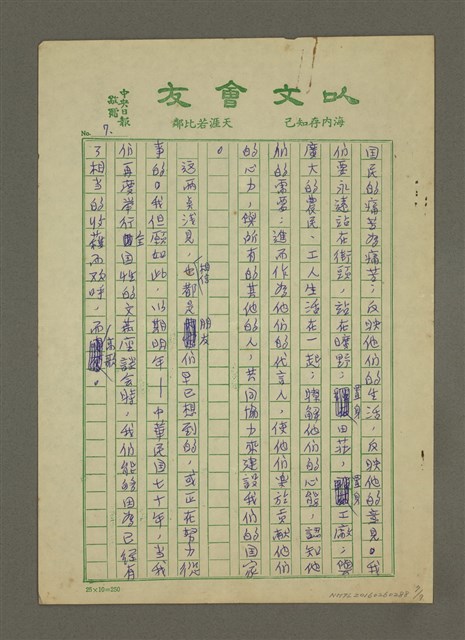 以文會友
海內存知己　天涯若比鄰
中央日報
敬贈
No. 7.
國民的痛苦為痛苦；反映他們的生活，反映他們的意見。我
們要永遠站在街頭，站在曠野；置身田莊，置身工廠；與
廣大的農民、工人生活在一起；瞭解他們的心態，認知他
們的需要；進而作為他們的代言人，使他們樂於貢獻他們
的心力，與所有的其他的人，共同協力來建設我們的國家
。
這兩点淺見，相信也都是朋友們早已想到的，或正在努力從
事的。我但願如此，以期明年——中華民國七十年，當我
們再度舉行全國性的文藝座談會時，我們能夠因為已經有
了相当的收穫而歡呼，而高歌。
25×10=250
NMTL20160260288
7/7